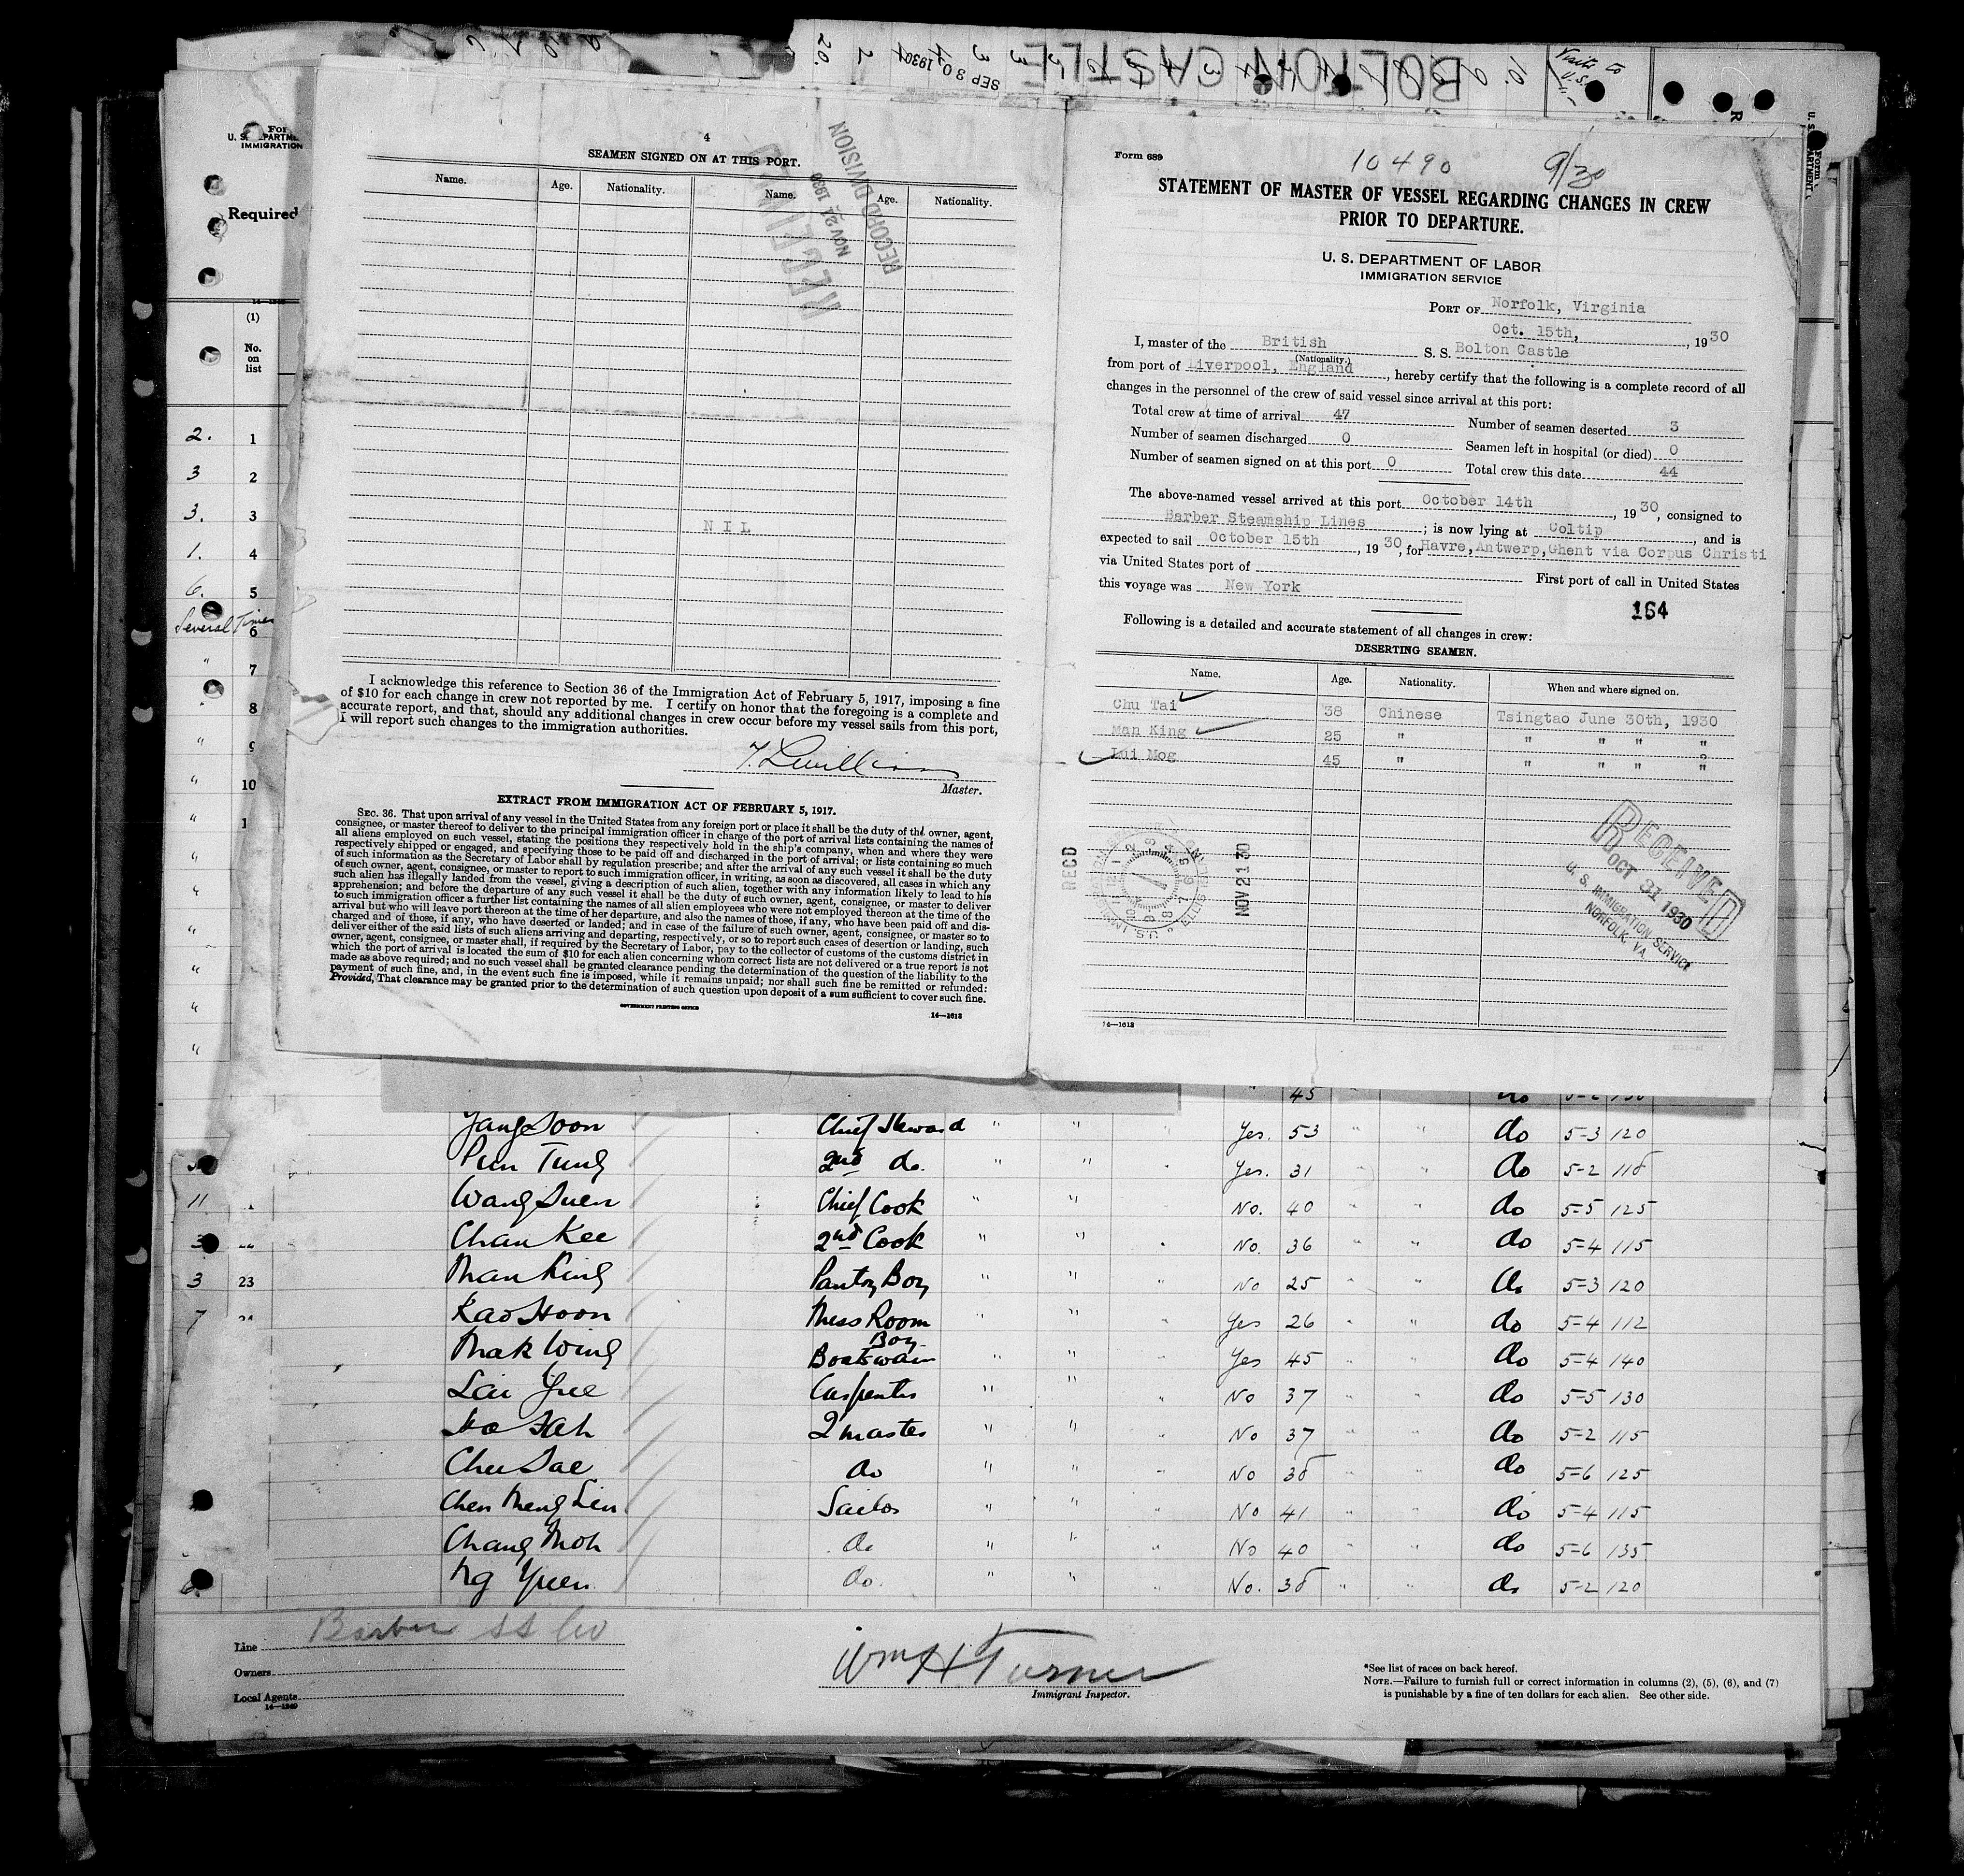 BOLTON CASTLE
SEP 30 1930
Visits to
U.S.
U. S. DEPARTMENT
IMMIGRATION
Required
(1)
No.
on
list
2. 1
3 2
3. 3
1. 4
6. 5
Several Times 6
" 7
" 8
" 9
" 10
4
SEAMEN SIGNED ON AT THIS PORT.
Name. Age. Nationality. Name. Age. Nationality.
RECEIVED
NOV 21 1930
RECORD DIVISION
N I L
I acknowledge this reference to Section 36 of the Immigration Act of February 5, 1917, imposing a fine
of $10 for each change in crew not reported by me. I certify on honor that the foregoing is a complete and
accurate report, and that, should any additional changes in crew occur before my vessel sails from this port,
I will report such changes to the immigration authorities.
Master.
EXTRACT FROM IMMIGRATION ACT OF FEBRUARY 5, 1917.
SEC. 36. That upon arrival of any vessel in the United States from any foreign port or place it shall be the duty of the owner, agent,
consignee, or master thereof to deliver to the principal immigration officer in charge of the port of arrival lists containing the names of
all aliens employed on such vessel, stating the positions they respectively hold in the ship's company, when and where they were
respectively shipped or engaged, and specifying those to be paid off and discharged in the port of arrival; or lists containing so much
of such information as the Secretary of Labor shall by regulation prescribe; and after the arrival of any such vessel it shall be the duty
of such owner, agent, consignee, or master to report to such immigration officer, in writing, as soon as discovered, all cases in which any
such alien has illegally landed from the vessel, giving a description of such alien, together with any information likely to lead to his
apprehension; and before the departure of any such vessel it shall be the duty of such owner, agent, consignee, or master to deliver
to such immigration officer a further list containing the names of all alien employees who were not employed thereon at the time of the
arrival but who will leave port thereon at the time of her departure, and also the names of those, if any, who have been paid off and dis-
charged and of those, if any, who have deserted or landed; and in case of the failure of such owner, agent, consignee, or master so to
deliver either of the said lists of such aliens arriving and departing, respectively, or so to report such cases of desertion or landing, such
owner, agent, consignee, or master shall, if required by the Secretary of Labor, pay to the collector of customs of the customs district in
which the port of arrival is located the sum of $10 for each alien concerning whom correct lists are not delivered or a true report is not
made as above required; and no such vessel shall be granted clearance pending the determination of the question of the liability to the
payment of such fine, and, in the event such fine is imposed, while it remains unpaid; nor shall such fine be remitted or refunded:
Provided, That clearance may be granted prior to the determination of such question upon deposit of a sum sufficient to cover such fine.
GOVERNMENT PRINTING OFFICE
14—1613
Form 689
10490 9/30
STATEMENT OF MASTER OF VESSEL REGARDING CHANGES IN CREW
PRIOR TO DEPARTURE.
U. S. DEPARTMENT OF LABOR
IMMIGRATION SERVICE
PORT OF Norfolk, Virginia
Oct. 15th, , 1930
I, master of the British S. S. Bolton Castle
(Nationality.)
from port of Liverpool, England, hereby certify that the following is a complete record of all
changes in the personnel of the crew of said vessel since arrival at this port:
Total crew at time of arrival 47 Number of seamen deserted 3
Number of seamen discharged 0 Seamen left in hospital (or died) 0
Number of seamen signed on at this port 0 Total crew this date 44
The above-named vessel arrived at this port October 14th, 1930, consigned to
Barber Steamship Lines; is now lying at Coltip, and is
expected to sail October 15th, 1930, for Havre, Antwerp, Ghent via Corpus Christi
via United States port of First port of call in United States
this voyage was New York
164
Following is a detailed and accurate statement of all changes in crew:
DESERTING SEAMEN.
Name. Age. Nationality. When and where signed on.
Chu Tai 38 Chinese Tsingtao June 30th, 1930
Man King 25 " " " " "
Lui Mog 45 " " " " "
RECD
NOV 21 30
RECEIVED
OCT 31 1930
U. S. IMMIGRATION SERVICE
NORFOLK, VA.
14—1613
45
Yang Soon Chief Steward " " " Yes. 53 " " do 5-3 120
Pun Tung 2nd do. " " " Yes. 31 " " do 5-2 118
11 Wang Suen Chief Cook " " " No. 40 " " do 5-5 125
3 Chan Kee 2nd Cook " " " No. 36 " " do 5-4 115
3 23 Man King Pantry Boy " " " No 25 " " do 5-3 120
7 24 Kao Hoon Mess Room Boy " " " Yes 26 " " do 5-4 112
Mak Wing Boatswain " " " Yes 45 " " do 5-4 140
Lai Yee Carpenter " " " No 37 " " do 5-5 130
Ho Fah Q master " " " No 37 " " do 5-2 115
Chu Tae do " " " No 38 " " do 5-6 125
Chen Meng Lin Sailor " " " No 41 " " do 5-4 115
Chang Moh do " " " No 40 " " do 5-6 135
Ng Yuen do. " " " No. 38 " " do 5-2 120
Line Barber SS Co
Owners
Local Agents
14—1240
Wm H Turner
Immigrant Inspector.
*See list of races on back hereof.
NOTE.—Failure to furnish full or correct information in columns (2), (5), (6), and (7)
is punishable by a fine of ten dollars for each alien. See other side.